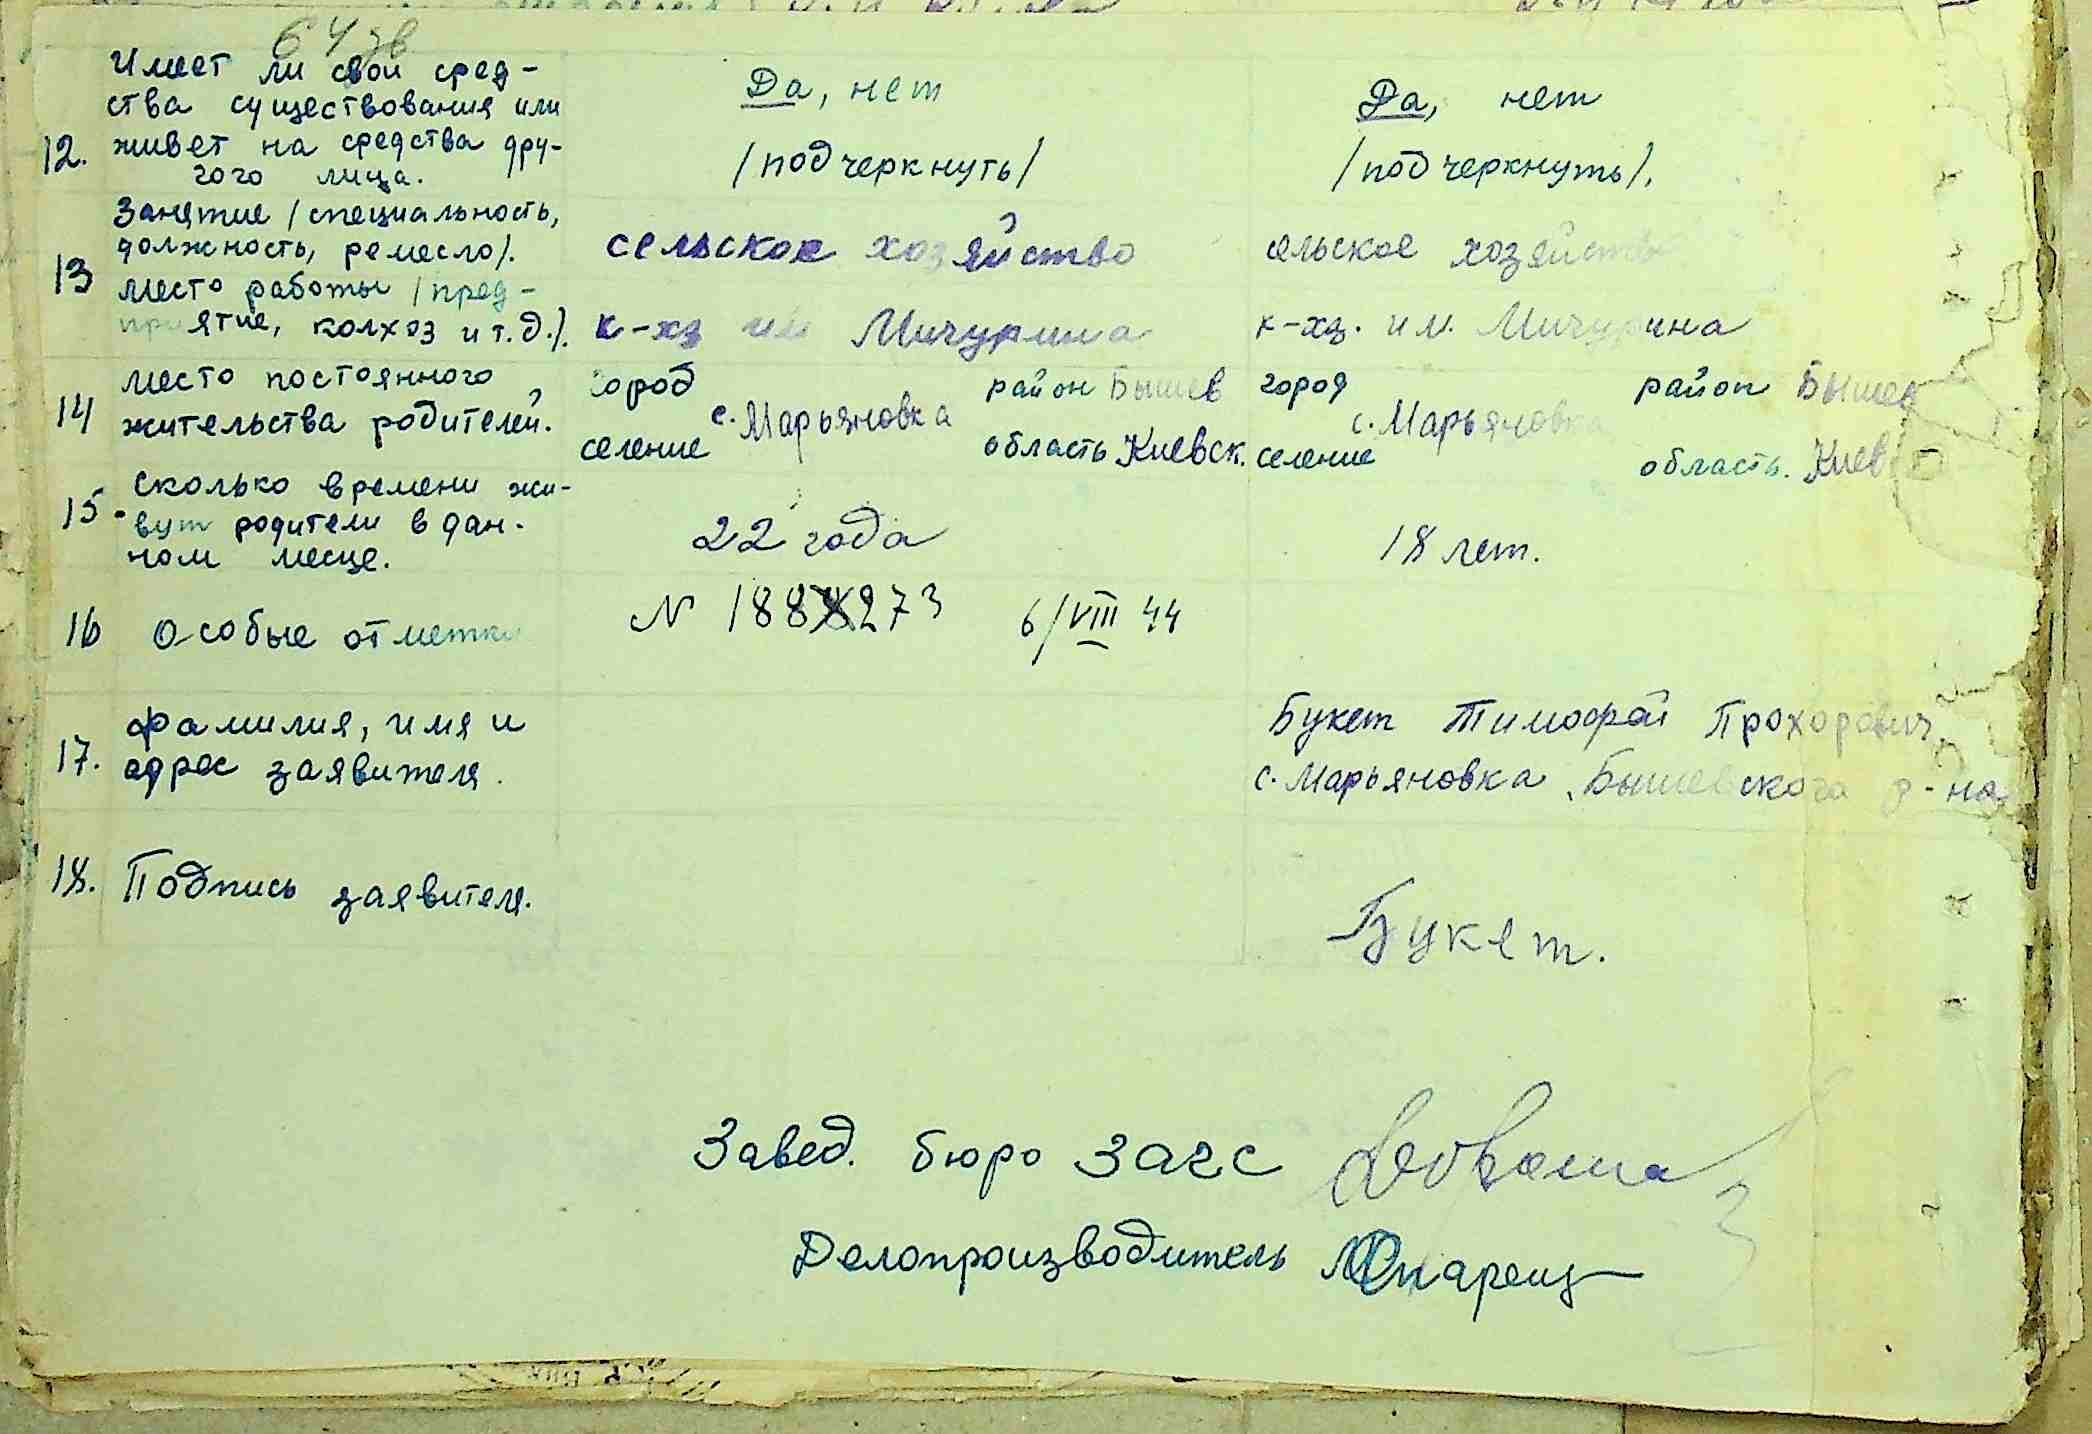 64 зв
Имеет ли свои сред-
ства существования или
12. живет на средства дру-
гого лица.
Да, нет
/подчеркнуть/
Да, нет
/подчеркнуть/.
Занятие /специальность,
должность, ремесло/.
13 Место работы /пред-
приятие, колхоз и т.д./.
сельское хозяйство
к-хз им Мичурина
сельское хозяйство
к-хз. им. Мичурина
14 Место постоянного
жительства родителей.
город район Бышев
с. Марьяновка
селение область Киевск.
город район Бышев
с. Марьяновка
селение область. Киев
15. Сколько времени жи-
вут родители в дан-
ном месце.
22 года
18 лет.
16 Особые отметки
N 188273 6/VIII 44
17. Фамилия, имя и
адрес заявителя.
Букет Тимофей Прохорович
с. Марьяновка Бышевского р-на
18. Подпись заявителя.
Букет.
Завед. бюро ЗАГС
Делопроизводитель